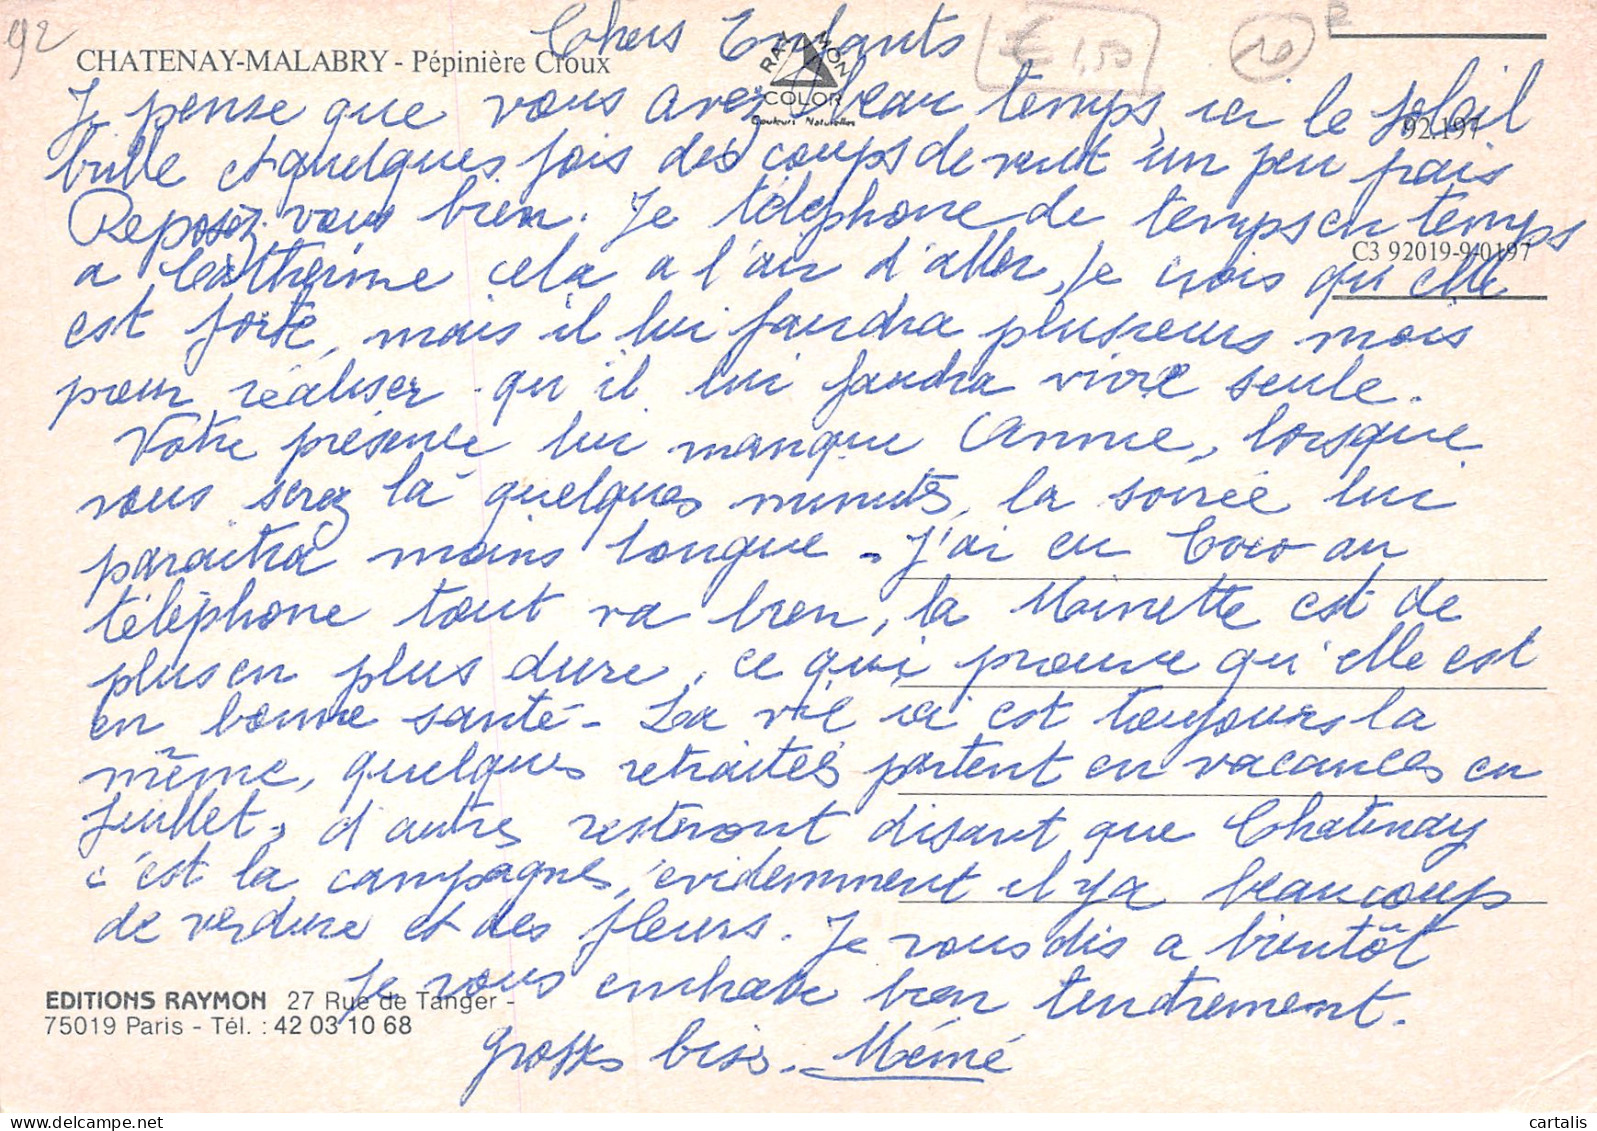 92
Chers Enfants
€ 1,50
10
CHATENAY-MALABRY - Pépinière Croux
RAYMON
COLOR
Couleurs Naturelles
Je pense que vous avez beau temps, ici le soleil
92.197
brille et quelques fois des coups de vent un peu frais
Reposez vous bien. Je téléphone de temps en temps
C3 92019-9-0197
a Catherine cela a l'air d'aller, je crois qu'elle
est forte, mais il lui faudra plusieurs mois
pour réaliser qu'il lui faudra vivre seule.
Votre présence lui manque Annie, lorsque
vous serez là quelques minutes, la soirée lui
paraitra moins longue - J'ai eu Coco au
téléphone tout va bien, la Minette est de
plus en plus dure, ce qui prouve qu'elle est
en bonne santé - La vie ici est toujours la
même, quelques retraités partent en vacances en
Juillet, d'autres resteront disant que Chatenay
c'est la campagne, évidemment il y a beaucoup
de verdure et des fleurs. Je vous dis a bientôt
Je vous embrasse bien tendrement.
EDITIONS RAYMON 27 Rue de Tanger -
75019 Paris - Tél. : 42 03 10 68
Grosses bises. Mémé
cartalis